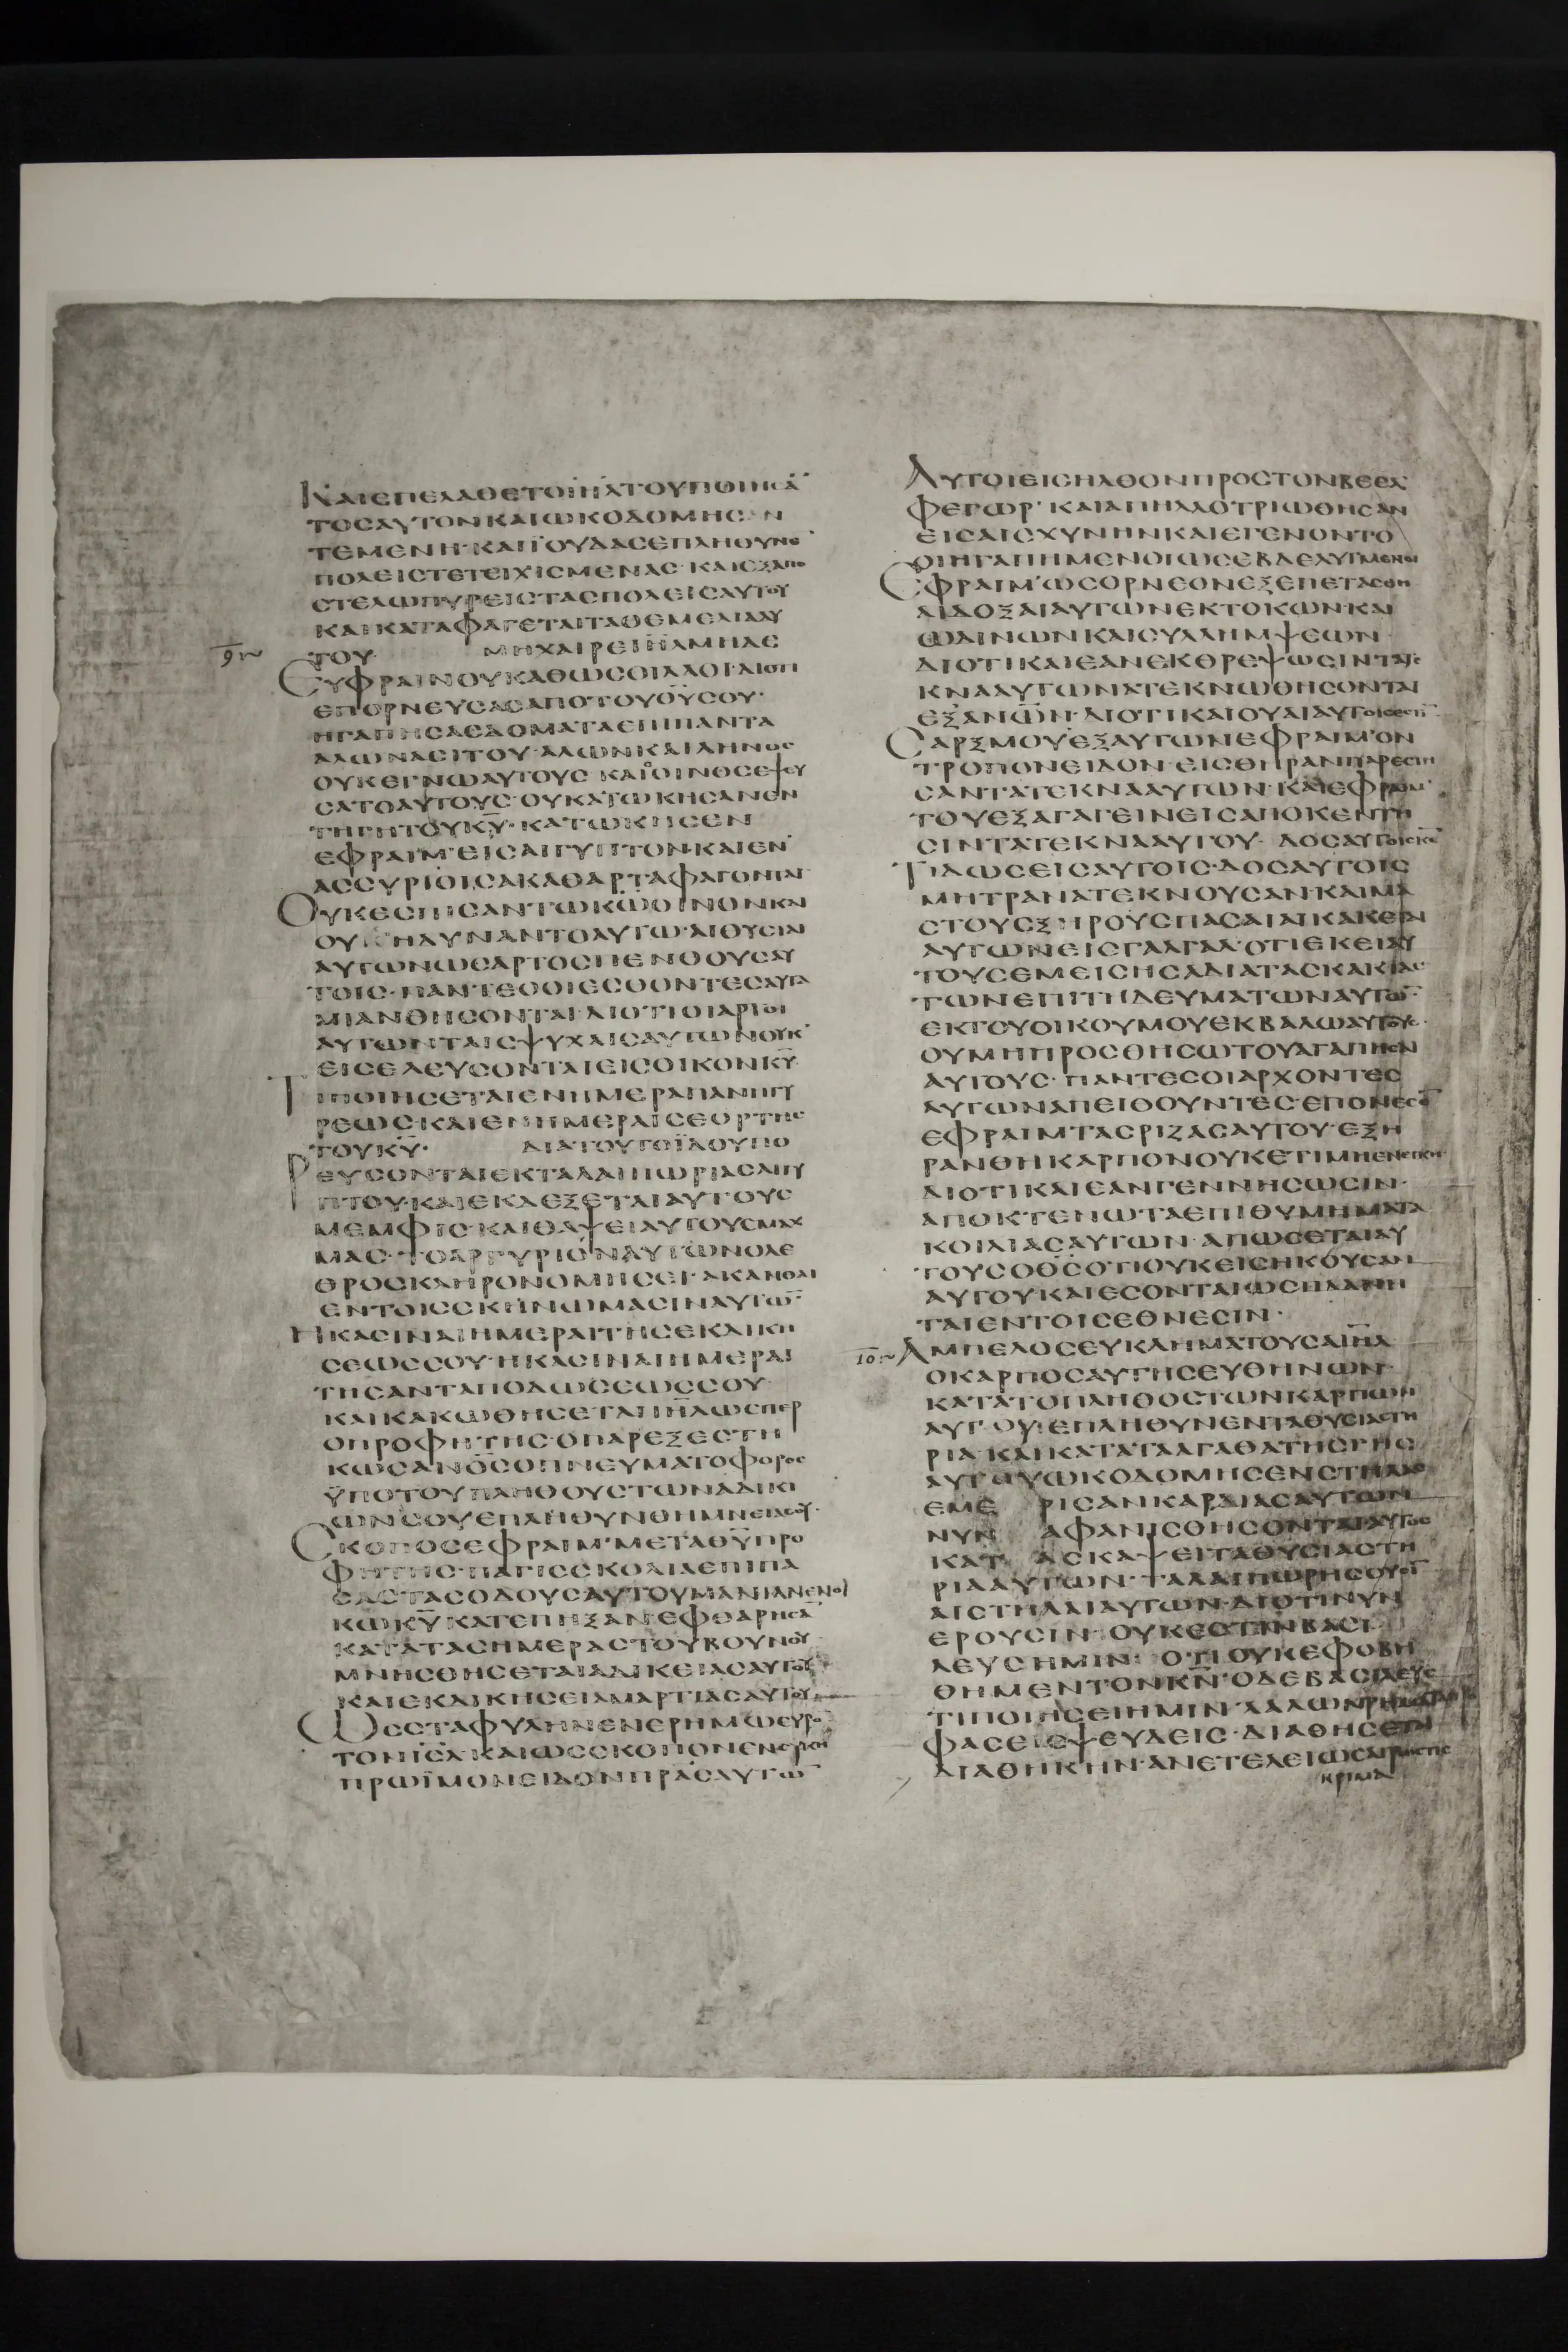 ΚΑΙΕΠΕΛΑΘΕΤΟΙΗΛΤΟΥΠΟΙΗΣΑ
ΤΟΣΑΥΤΟΝΚΑΙΩΚΟΔΟΜΗΣΑΝ
ΤΕΜΕΝΗ·ΚΑΙΪΟΥΔΑΣΕΠΛΗΘΥΝΕ
ΠΟΛΕΙΣΤΕΤΕΙΧΙΣΜΕΝΑΣ·ΚΑΙΕΞΑΠΟ
ΣΤΕΛΩΠΥΡΕΙΣΤΑΣΠΟΛΕΙΣΑΥΤΟΥ
ΚΑΙΚΑΤΑΦΑΓΕΤΑΙΤΑΘΕΜΕΛΙΑΑΥ
9
ΤΟΥ· ΜΗΧΑΙΡΕΙΗΛΜΗΔΕ
ΕΥΦΡΑΙΝΟΥΚΑΘΩΣΟΙΛΑΟΙ·ΔΙΟΤΙ
ΕΠΟΡΝΕΥΣΑΣΑΠΟΤΟΥΘΥΣΟΥ·
ΗΓΑΠΗΣΑΣΔΟΜΑΤΑΕΠΙΠΑΝΤΑ
ΑΛΩΝΑΣΙΤΟΥ·ΑΛΩΝΚΑΙΛΗΝΟΣ
ΟΥΚΕΓΝΩΑΥΤΟΥΣ·ΚΑΙΟΟΙΝΟΣΕΨΕΥ
ΣΑΤΟΑΥΤΟΥΣ·ΟΥΚΑΤΩΚΗΣΑΝΕΝ
ΤΗΓΗΤΟΥΚΥ·ΚΑΤΩΚΗΣΕΝ
ΕΦΡΑΙΜ·ΕΙΣΑΙΓΥΠΤΟΝ·ΚΑΙΕΝ
ΑΣΣΥΡΙΟΙΣΑΚΑΘΑΡΤΑΦΑΓΟΝΤΑΙ
ΟΥΚΕΣΠΙΣΑΝΤΩΚΩΟΙΝΟΝΚΑΙ
ΟΥΧΗΔΥΝΑΝΤΟΑΥΤΩ·ΑΙΘΥΣΙΑΙ
ΑΥΤΩΝΩΣΑΡΤΟΣΠΕΝΘΟΥΣΑΥ
ΤΟΙΣ·ΠΑΝΤΕΣΟΙΕΣΘΟΝΤΕΣΑΥΤΑ
ΜΙΑΝΘΗΣΟΝΤΑΙ·ΔΙΟΤΙΟΙΑΡΤΟΙ
ΑΥΤΩΝΤΑΙΣΨΥΧΑΙΣΑΥΤΩΝΟΥΚ
ΕΙΣΕΛΕΥΣΟΝΤΑΙΕΙΣΟΙΚΟΝΚΥ
ΤΙΠΟΙΗΣΕΤΑΙΕΝΗΜΕΡΑΠΑΝΗΓΥ
ΡΕΩΣ·ΚΑΙΕΝΗΜΕΡΑΙΣΕΟΡΤΗΣ
ΤΟΥΚΥ· ΔΙΑΤΟΥΤΟΪΔΟΥΠΟ
ΡΕΥΣΟΝΤΑΙΕΚΤΑΛΑΙΠΩΡΙΑΣΑΙΓΥ
ΠΤΟΥ·ΚΑΙΕΚΔΕΞΕΤΑΙΑΥΤΟΥΣ
ΜΕΜΦΙΣ·ΚΑΙΘΑΨΕΙΑΥΤΟΥΣΜΑΧ
ΜΑΣ·ΤΟΑΡΓΥΡΙΟΝΑΥΤΩΝΟΛΕ
ΘΡΟΣΚΛΗΡΟΝΟΜΗΣΕΙ·ΑΚΑΝΘΑΙ
ΕΝΤΟΙΣΣΚΗΝΩΜΑΣΙΝΑΥΤΩ
ΗΚΑΣΙΝΑΙΗΜΕΡΑΙΤΗΣΕΚΔΙΚΗ
ΣΕΩΣΣΟΥ·ΗΚΑΣΙΝΑΙΗΜΕΡΑΙ
ΤΗΣΑΝΤΑΠΟΔΩΣΕΩΣΣΟΥ·
ΚΑΙΚΑΚΩΘΗΣΕΤΑΙΗΛΩΣΠΕΡ
ΟΠΡΟΦΗΤΗΣ·ΟΠΑΡΕΞΕΣΤΗ
ΚΩΣΑΝΟΣΟΠΝΕΥΜΑΤΟΦΟΡΟΣ
ΫΠΟΤΟΥΠΛΗΘΟΥΣΤΩΝΑΔΙΚΙ
ΩΝΣΟΥΕΠΛΗΘΥΝΘΗΜΝΕΙΑΣΟΥ·
ΣΚΟΠΟΣΕΦΡΑΙΜ·ΜΕΤΑΘΥΠΡΟ
ΦΗΤΗΣ·ΠΑΓΙΣΣΚΟΛΙΑΕΠΙΠΑ
ΣΑΣΤΑΣΟΔΟΥΣΑΥΤΟΥΜΑΝΙΑΝΕΝΟΙ
ΚΩΚΥΚΑΤΕΠΗΞΑΝ·ΕΦΘΑΡΗΣΑ
ΚΑΤΑΤΑΣΗΜΕΡΑΣΤΟΥΒΟΥΝΟΥ
ΜΝΗΣΘΗΣΕΤΑΙΑΔΙΚΕΙΑΣΑΥΤΟΥ
ΚΑΙΕΚΔΙΚΗΣΕΙΑΜΑΡΤΙΑΣΑΥΤΟΥ
ΩΣΣΤΑΦΥΛΗΝΕΝΕΡΗΜΩΕΥΡΟ
ΤΟΝΙΣΛ·ΚΑΙΩΣΣΚΟΠΟΝΕΝΣΥΚΗ
ΠΡΩΪΜΟΝΕΙΔΟΝΠΡΑΣΑΥΤΩ
ΑΥΤΟΙΕΙΣΗΛΘΟΝΠΡΟΣΤΟΝΒΕΕΛ
ΦΕΓΩΡ·ΚΑΙΑΠΗΛΛΟΤΡΙΩΘΗΣΑΝ
ΕΙΣΑΙΣΧΥΝΗΝΚΑΙΕΓΕΝΟΝΤΟ
ΟΙΗΓΑΠΗΜΕΝΟΙΩΣΕΒΔΕΛΥΓΜΕΝΟΙ
ΕΦΡΑΙΜ·ΩΣΟΡΝΕΟΝΕΞΕΠΕΤΑΣΘΗ
ΑΙΔΟΞΑΙΑΥΤΩΝΕΚΤΟΚΩΝΚΑΙ
ΩΔΙΝΩΝΚΑΙΣΥΛΛΗΜΨΕΩΝ
ΔΙΟΤΙΚΑΙΕΑΝΕΚΘΡΕΨΩΣΙΝΤΑΤΕ
ΚΝΑΑΥΤΩΝΑΤΕΚΝΩΘΗΣΟΝΤΑΙ
ΕΞΑΝΩΝ·ΔΙΟΤΙΚΑΙΟΥΑΙΑΥΤΟΙΣΕΣΤΙ
ΣΑΡΞΜΟΥΕΞΑΥΤΩΝΕΦΡΑΙΜ·ΟΝ
ΤΡΟΠΟΝΕΙΔΟΝ·ΕΙΣΘΗΡΑΝΠΑΡΕΣΤΗ
ΣΑΝΤΑΤΕΚΝΑΑΥΤΩΝ·ΚΑΙΕΦΡΑΙΜ
ΤΟΥΕΞΑΓΑΓΕΙΝΕΙΣΑΠΟΚΕΝΤΗ
ΣΙΝΤΑΤΕΚΝΑΑΥΤΟΥ· ΔΟΣΑΥΤΟΙΣΚΕ
ΤΙΔΩΣΕΙΣΑΥΤΟΙΣ·ΔΟΣΑΥΤΟΙΣ
ΜΗΤΡΑΝΑΤΕΚΝΟΥΣΑΝ·ΚΑΙΜΑ
ΣΤΟΥΣΞΗΡΟΥΣΠΑΣΑΙΑΙΚΑΚΕΙΑΙ
ΑΥΤΩΝΕΙΣΓΑΛΓΑΛ·ΟΤΙΕΚΕΙΑΥ
ΤΟΥΣΕΜΕΙΣΗΣΑΔΙΑΤΑΣΚΑΚΙΑΣ
ΤΩΝΕΠΙΤΗΔΕΥΜΑΤΩΝΑΥΤΩ
ΕΚΤΟΥΟΙΚΟΥΜΟΥΕΚΒΑΛΩΑΥΤΟΥΣ
ΟΥΜΗΠΡΟΣΘΗΣΩΤΟΥΑΓΑΠΗΣΑΙ
ΑΥΤΟΥΣ·ΠΑΝΤΕΣΟΙΑΡΧΟΝΤΕΣ
ΑΥΤΩΝΑΠΕΙΘΟΥΝΤΕΣ·ΕΠΟΝΕΣΕ
ΕΦΡΑΙΜ·ΤΑΣΡΙΖΑΣΑΥΤΟΥ·ΕΞΗ
ΡΑΝΘΗΚΑΡΠΟΝΟΥΚΕΤΙΜΗΕΝΕΓΚΗ
ΔΙΟΤΙΚΑΙΕΑΝΓΕΝΝΗΣΩΣΙΝ·
ΑΠΟΚΤΕΝΩΤΑΕΠΙΘΥΜΗΜΑΤΑ
ΚΟΙΛΙΑΣΑΥΤΩΝ·ΑΠΩΣΕΤΑΙΑΥ
ΤΟΥΣΟΘΣΟΤΙΟΥΚΕΙΣΗΚΟΥΣΑΝ
ΑΥΤΟΥΚΑΙΕΣΟΝΤΑΙΩΣΠΛΑΝΗ
ΤΑΙΕΝΤΟΙΣΕΘΝΕΣΙΝ·
10 ΑΜΠΕΛΟΣΕΥΚΛΗΜΑΤΟΥΣΑΙΗΛ
ΟΚΑΡΠΟΣΑΥΤΗΣΕΥΘΗΝΩΝ·
ΚΑΤΑΤΟΠΛΗΘΟΣΤΩΝΚΑΡΠΩΝ
ΑΥΤΟΥ·ΕΠΛΗΘΥΝΕΝΤΑΘΥΣΙΑΣΤΗ
ΡΙΑ·ΚΑΙΚΑΤΑΤΑΑΓΑΘΑΤΗΣΓΗΣ
ΑΥΤΟΥΩΚΟΔΟΜΗΣΕΝΣΤΗΛΑΣ
ΕΜΕ ΡΙΣΑΝΚΑΡΔΙΑΣΑΥΤΩΝ
ΝΥΝ ΑΦΑΝΙΣΘΗΣΟΝΤΑΙΑΥΤΟΣ
ΚΑΤ ΑΣΚΑΨΕΙΤΑΘΥΣΙΑΣΤΗ
ΡΙΑΑΥΤΩΝ·ΤΑΛΑΙΠΩΡΗΣΟΥΣΙ
ΑΙΣΤΗΛΑΙΑΥΤΩΝ·ΔΙΟΤΙΝΥΝ
ΕΡΟΥΣΙΝ·ΟΥΚΕΣΤΙΝΒΑΣΙ
ΛΕΥΣΗΜΙΝ· ΟΤΙΟΥΚΕΦΟΒΗ
ΘΗΜΕΝΤΟΝΚΝ·ΟΔΕΒΑΣΙΛΕΥΣ
ΤΙΠΟΙΗΣΕΙΗΜΙΝ·ΛΑΛΩΝΡΗΜΑΤΑΠΡΟ
ΦΑΣΕΙΣΨΕΥΔΕΙΣ·ΔΙΑΘΗΣΕΤΑΙ
ΔΙΑΘΗΚΗΝ·ΑΝΕΤΕΛΕΙΩΣΑΓΡΩΣΤΙΣ
ΚΡΙΜΑ